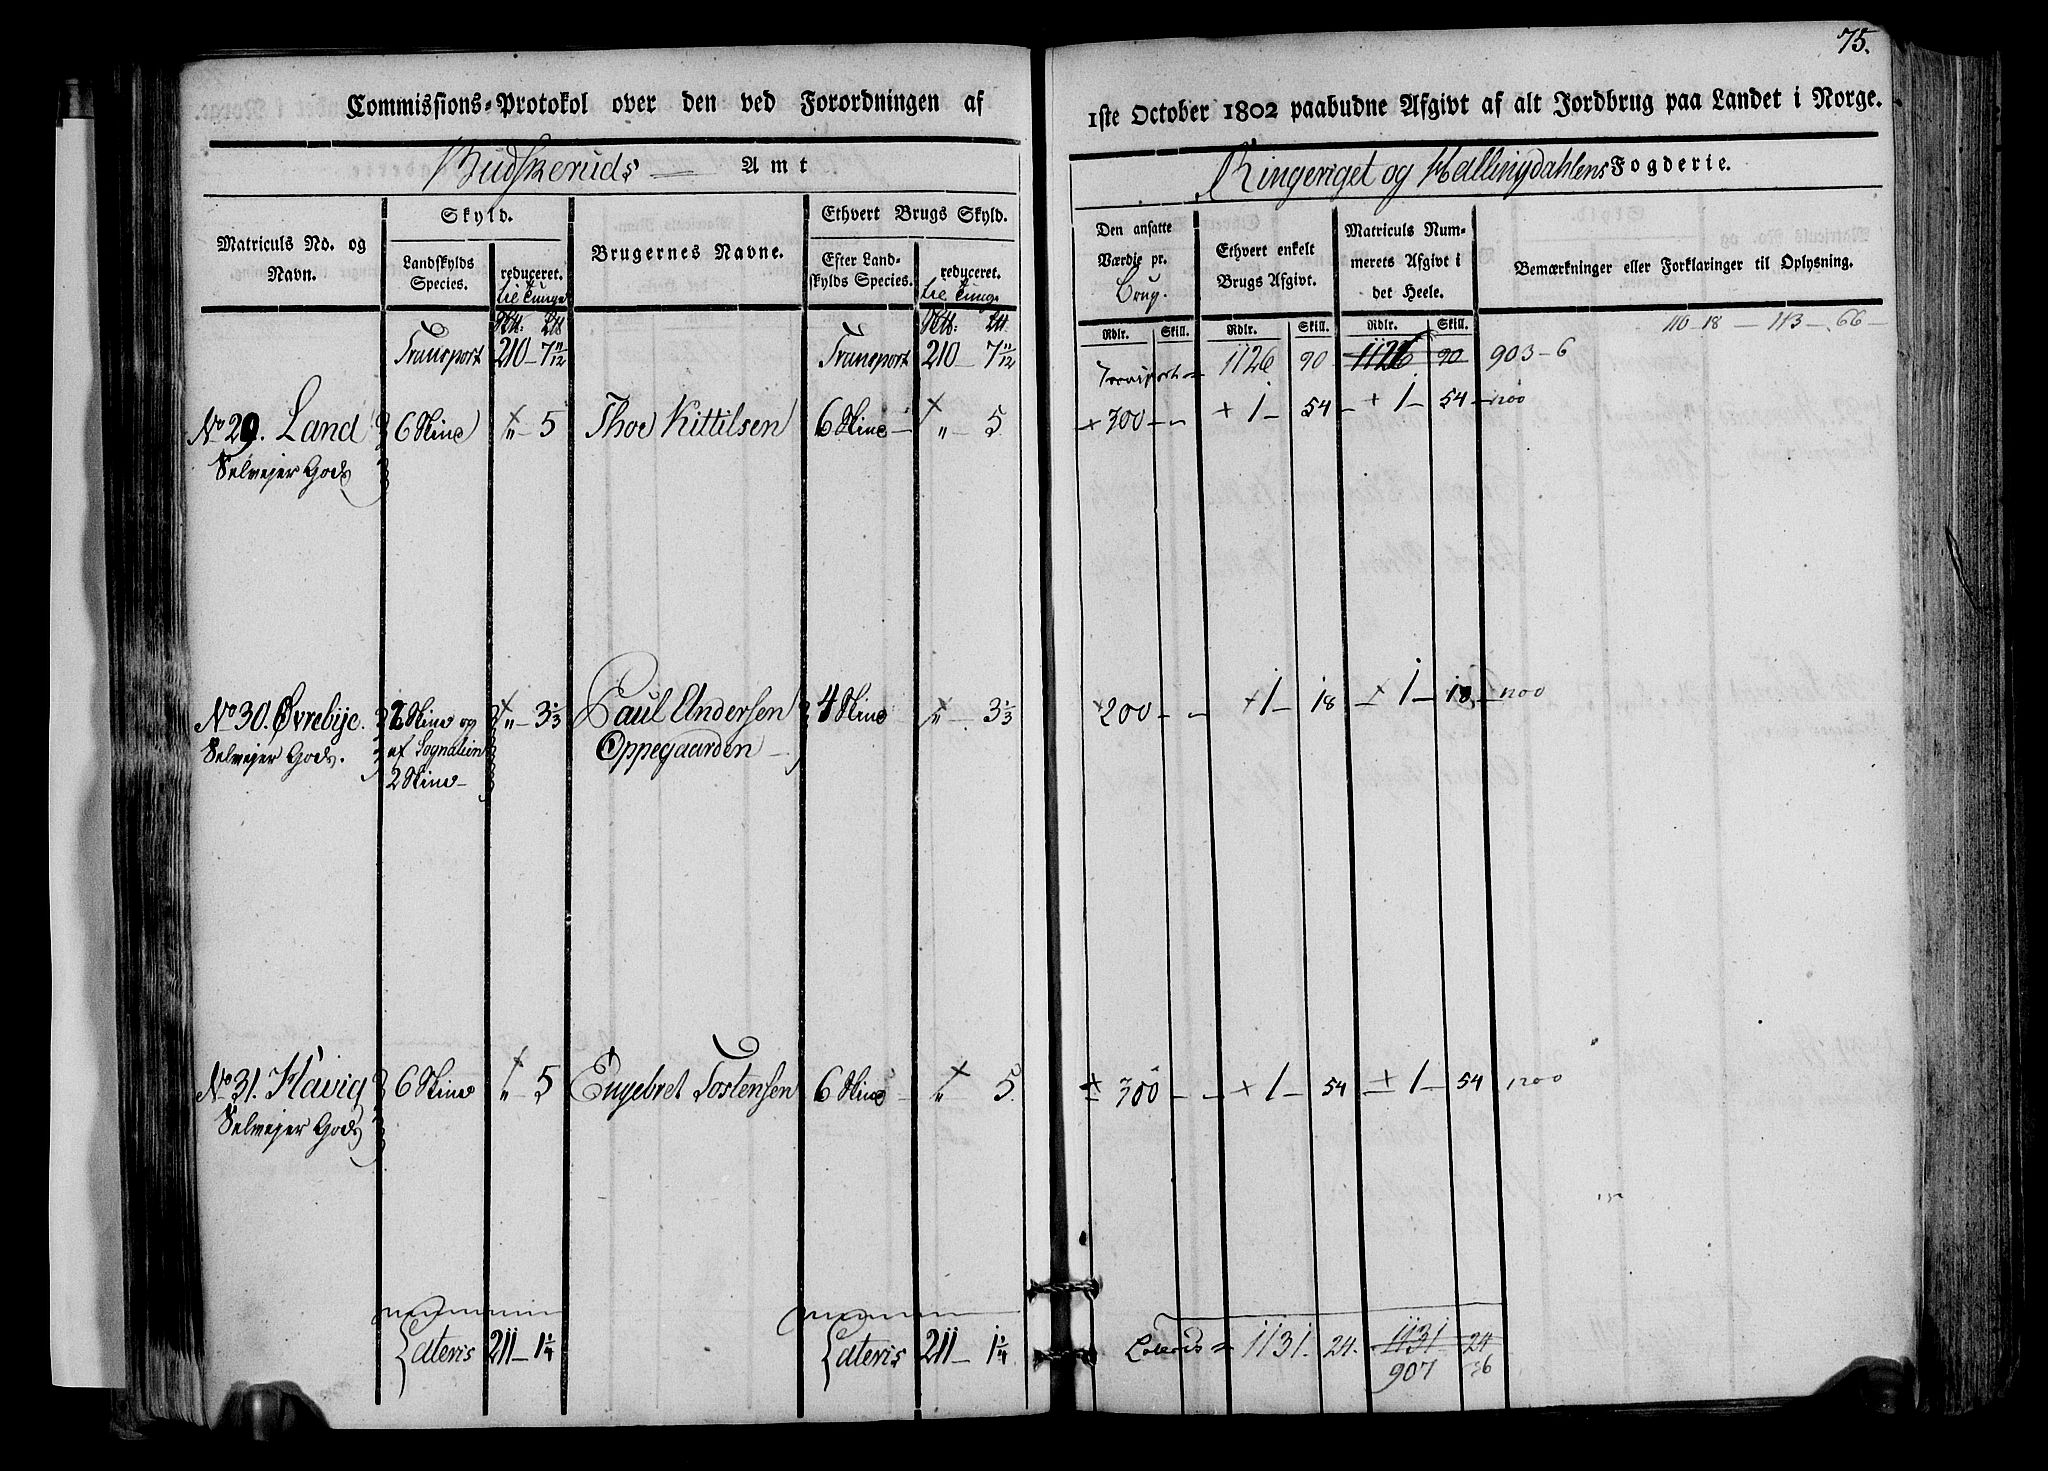 75.
Commissions-Protokol over den ved Forordningen af
1ste October 1802 paabudne Afgivt af alt Jordbrug paa Landet i Norge.
Budskeruds Amt
Ringeriget og Hallingdahlens Fogderie.
Matriculs No. og Navn.
Skyld.
Landskylds Species.
reduceret. til Tunge
Brugernes Navne.
Ethvert Brugs Skyld.
Efter Landskylds Species.
reduceret. til Tunge
Den ansatte Værdie pr. Brug.
Ethvert enkelt Brugs Afgivt.
Matriculs Nummerets Afgivt i det Heele.
Bemærkninger eller Forklaringer til Oplysning.
Rdlr. Skill. Rdlr. Skill. Rdlr. Skill.
110 18 — 113 — 66 —
Transport 210 — 7 11/12 Transport 210 — 7 11/12 Transport 1126 90 1126 90 903 — 6
No 29. Land 6 Skind × „ — 5 Thoe Kittilsen 6 Skind — × „ — 5 + 300 — „ + 1 — 54 — + 1 — 54 — 1200
Selvejer Gods
No 30. Øvrebye. 2 Skind og × „ — 3 1/3 Paul Andersen 4 Skind × „ — 3 1/3 × 200 — „ × 1 — 18 — × 1 — 18 — 1200
Selvejer Gods. af Sognatien Oppegaarden —
2 Skind —
No 31. Havig 6 Skind × „ — 5 Engebret Tostensen 6 Skind — × „ 5 + 300 — „ + 1 — 54 + 1 — 54 1200
Selvejer Gods
Lateris 211 — 1 1/4 Lateris 211 — 1 1/4 Lateris 1131. 24. 1131 24
907 36